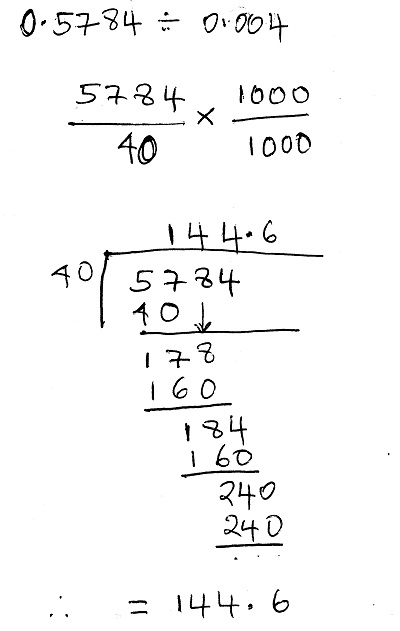 0.5784 ÷ 0.004
5784 1000
×
40 1000
144.6
40 5784
40 ↓
178
160
184
160
240
240
...
∴ = 144.6